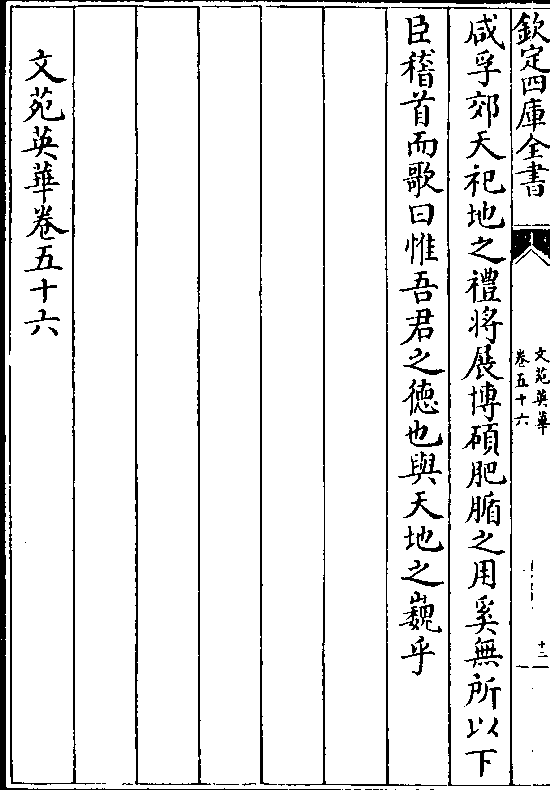 欽定四庫全書
文苑英華
卷五十六
十二
咸孚郊天祀地之禮將展博碩肥腯之用奚無所以下
臣稽首而歌曰惟吾君之德也與天地之巍乎
文苑英華卷五十六